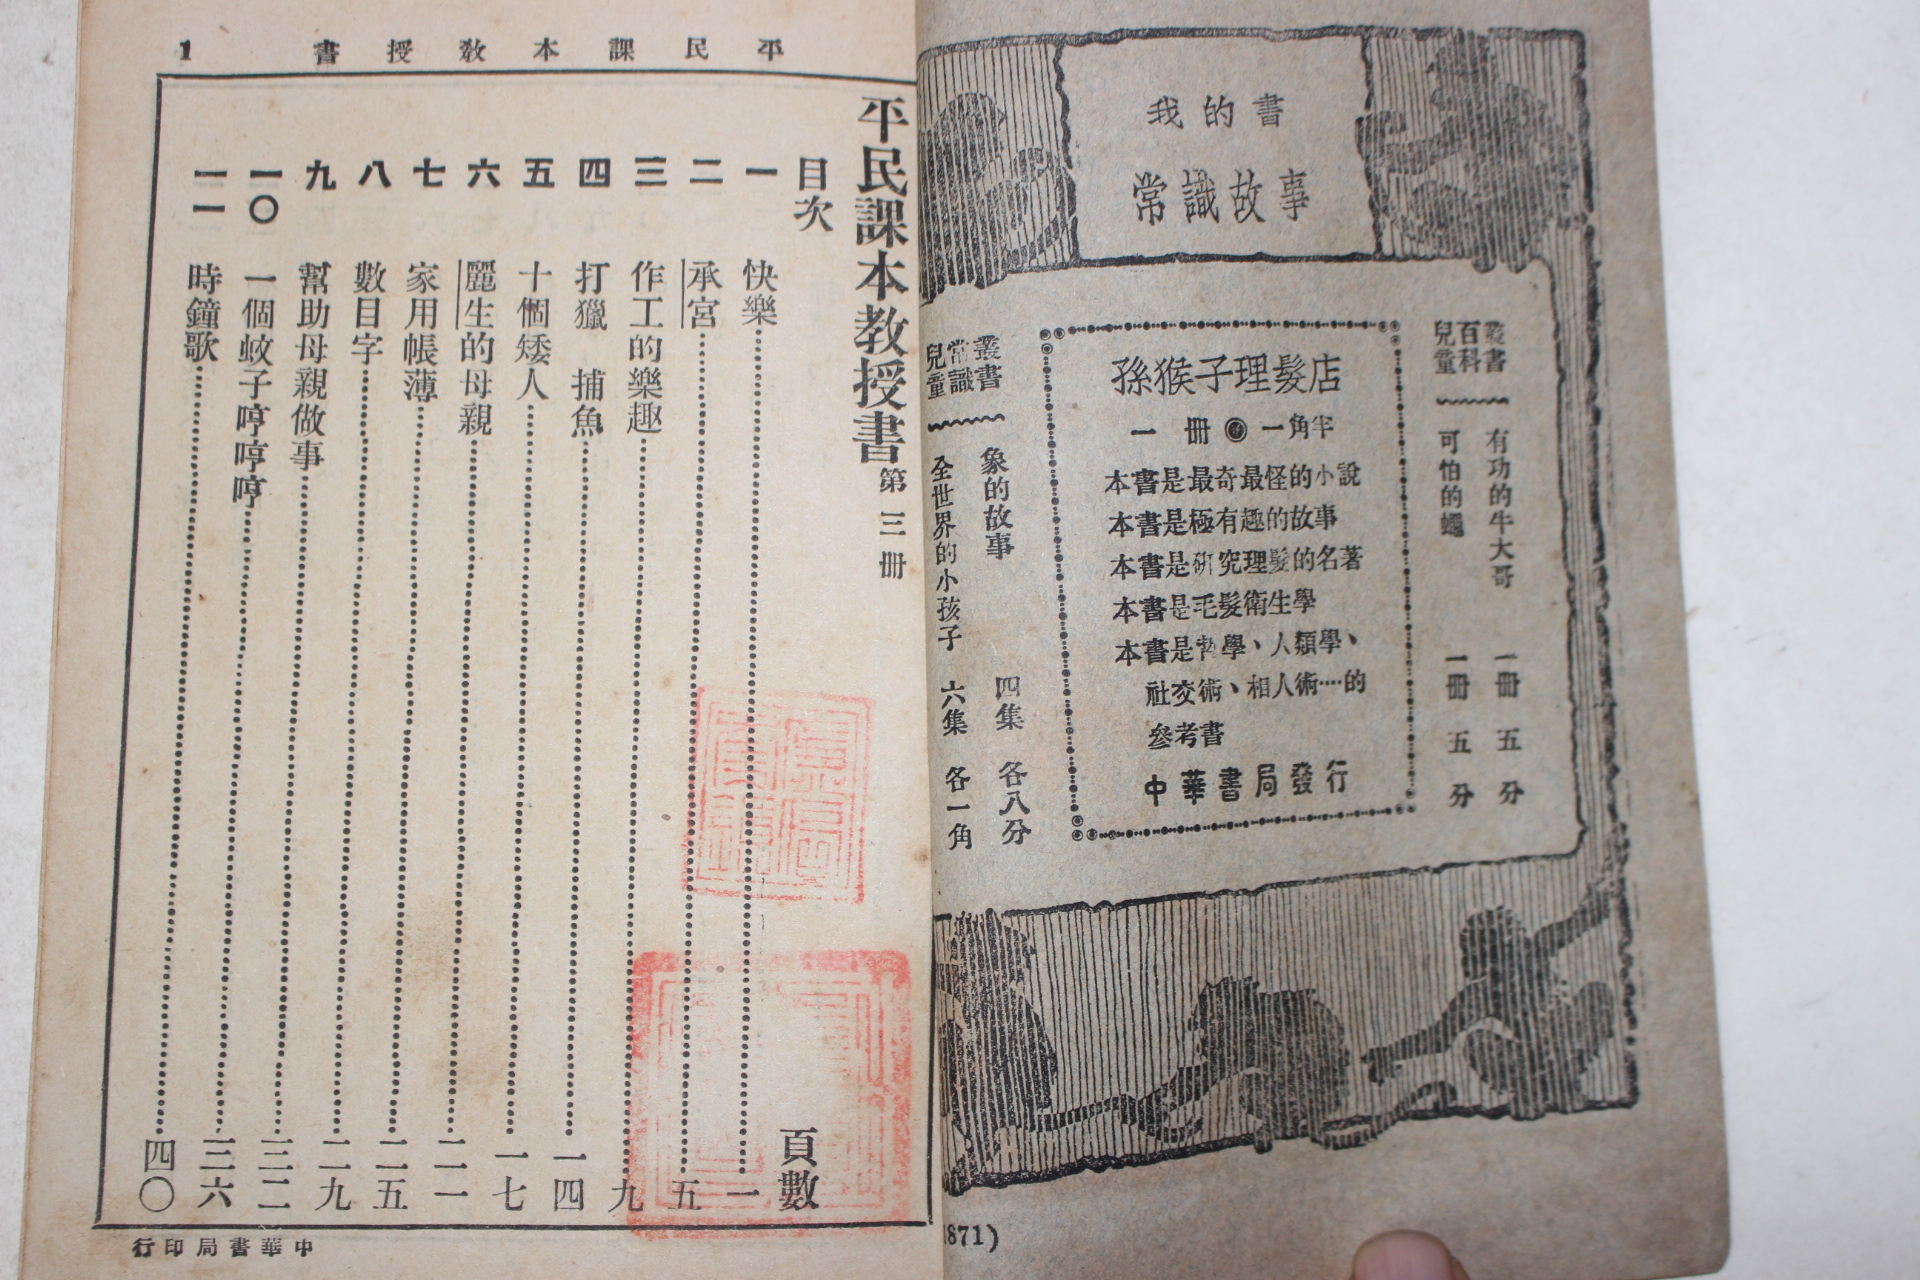 我的書
常識故事
兒童百科叢書
有功的牛大哥 一冊 五分
可怕的蠅 一冊 五分
孫猴子理髮店
一冊 一角半
本書是最奇最怪的小說
本書是極有趣的故事
本書是研究理髮的名著
本書是毛髮衛生學
本書是哲學、人類學、
社交術、相人術····的
參考書
中華書局發行
兒童常識叢書
象的故事 四集 各八分
全世界的小孩子 六集 各一角
871)
平民課本教授書 1
平民課本教授書 第三冊
目次 頁數
一 快樂 一
二 承宮 五
三 作工的樂趣 九
四 打獵 捕魚 一四
五 十個矮人 一七
六 麗生的母親 二一
七 家用帳薄 二五
八 數目字 二九
九 幫助母親做事 三二
一〇 一個蚊子哼哼哼 三六
一一 時鐘歌 四〇
中華書局印行